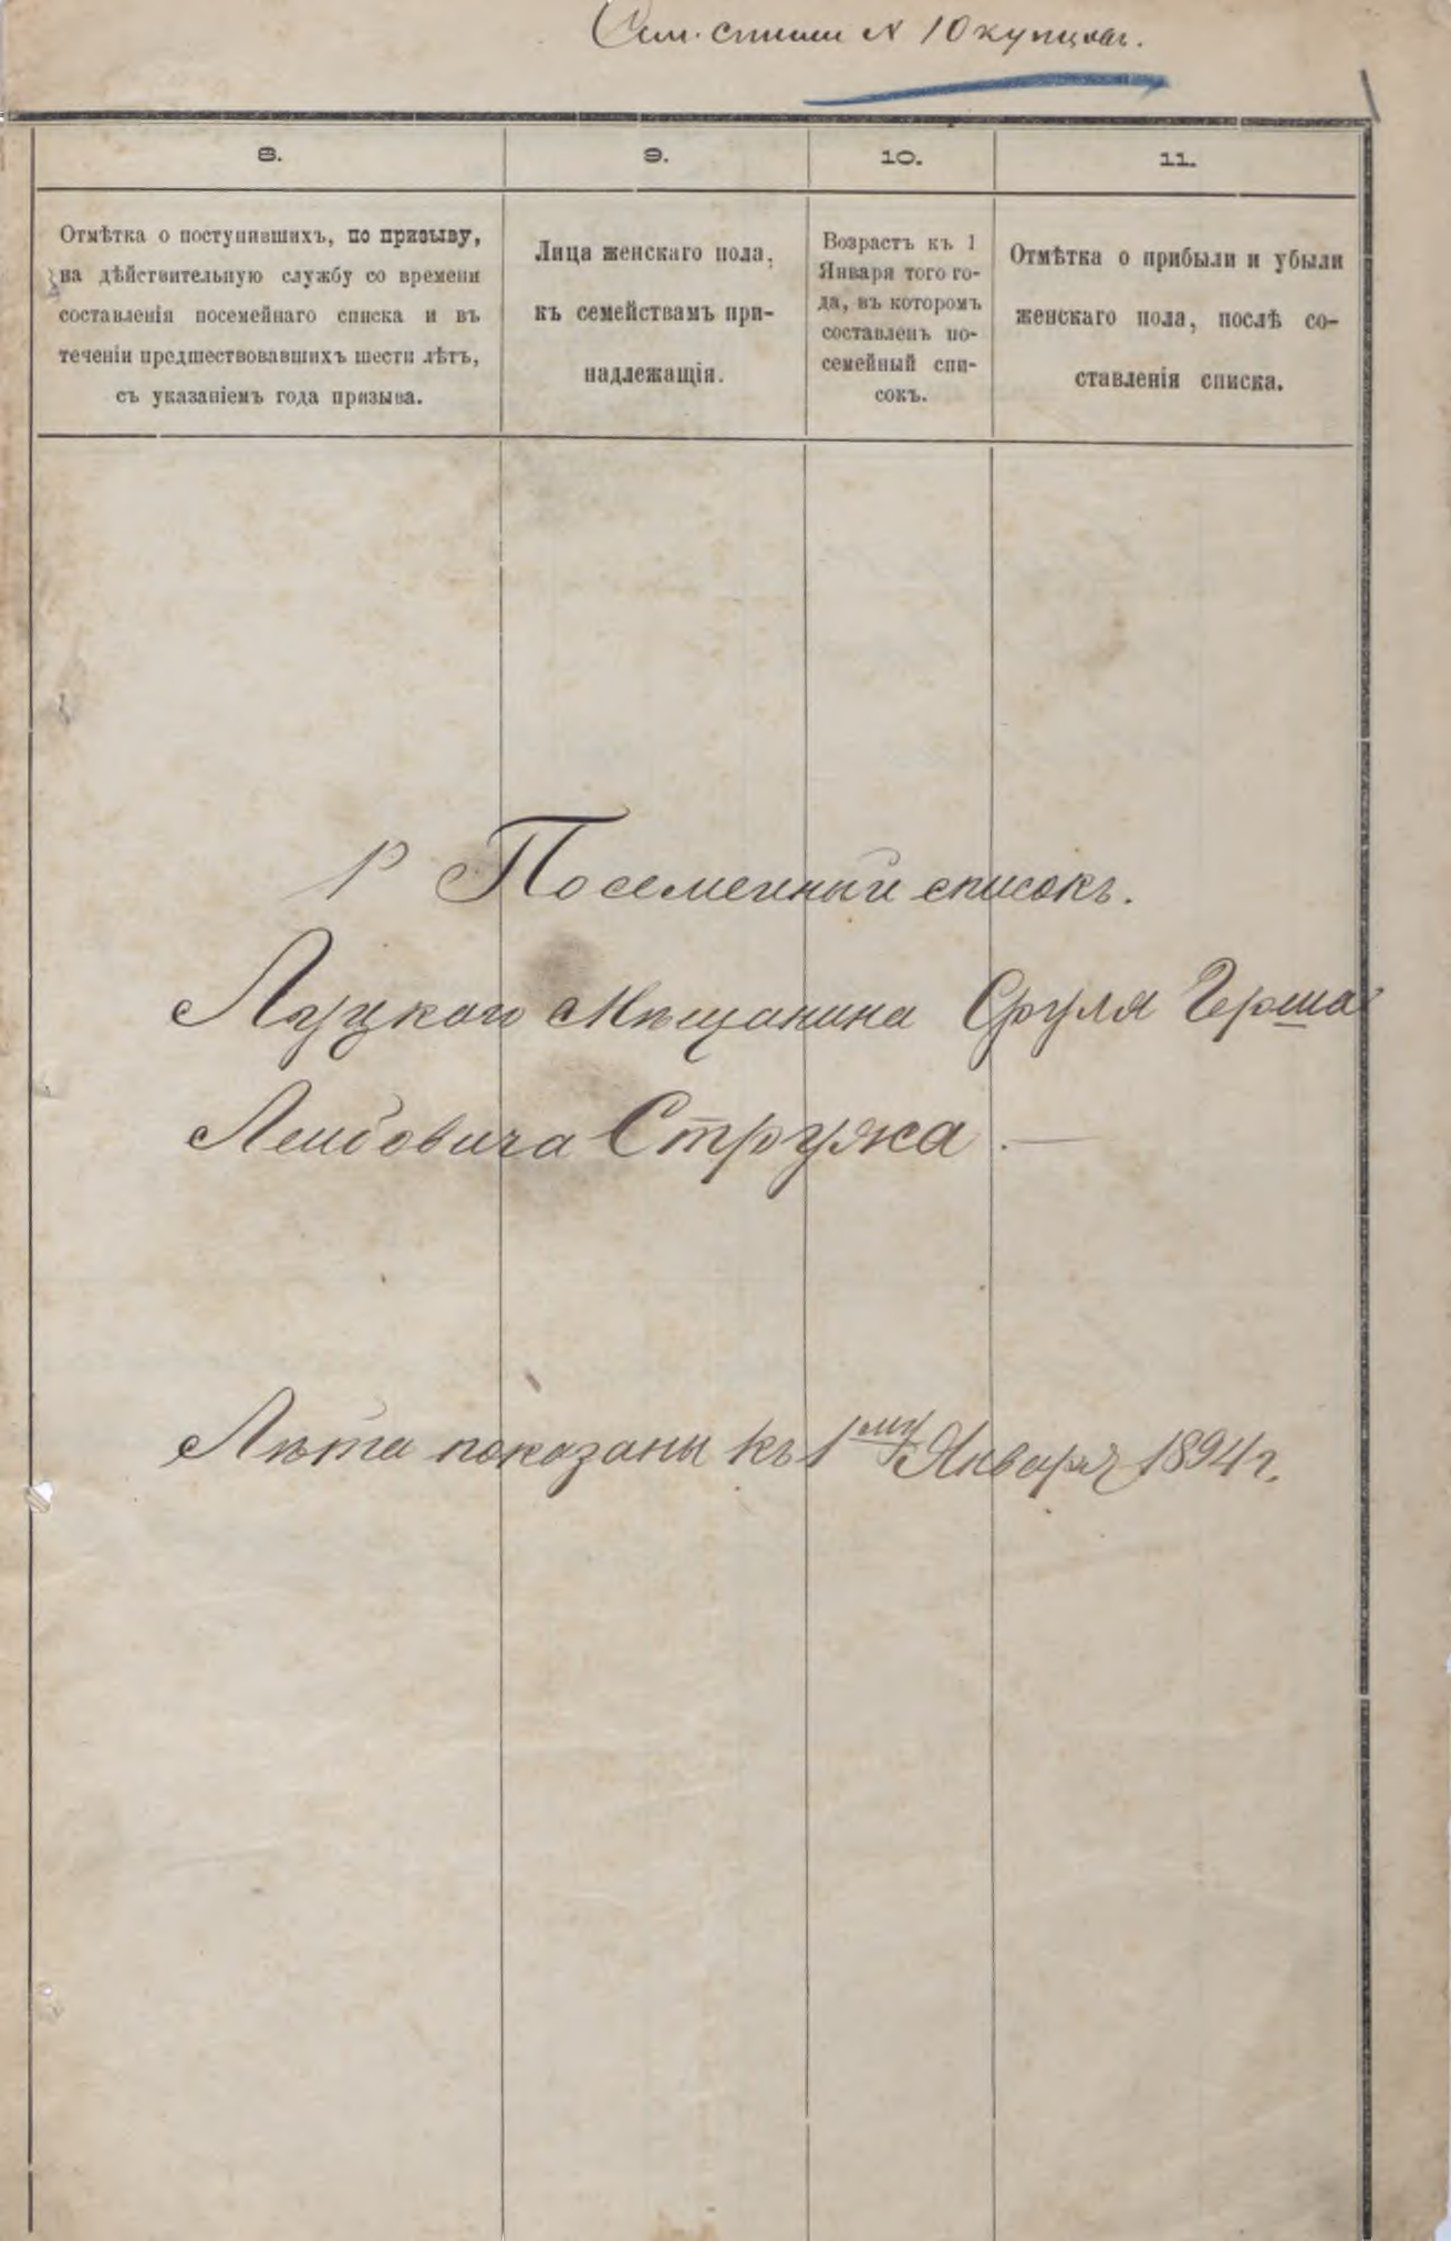 Сем. списки № 10 купцовъ.
8.
9.
10.
11.
Отмѣтка о поступившихъ, по призыву,
на дѣйствительную службу со времени
составленія посемейнаго списка и въ
теченіи предшествовавшихъ шести лѣтъ,
съ указаніемъ года призыва.
Лица женскаго пола,
къ семействамъ при-
надлежащія.
Возрастъ къ 1
Января того го-
да, въ которомъ
составленъ по-
семейный спи-
сокъ.
Отмѣтка о прибыли и убыли
женскаго пола, послѣ со-
ставленія списка.
Посемейный списокъ.
Луцкаго Мѣщанина Сруля Герша
Лейбовича Стружа.
Лѣта показаны къ 1му Января 1894 г.